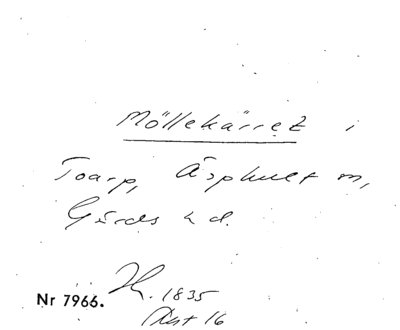 Möllekärret i
Toarp, Äsphult sn,
Gärds hd.
Nr 7966. 1835
Akt 16